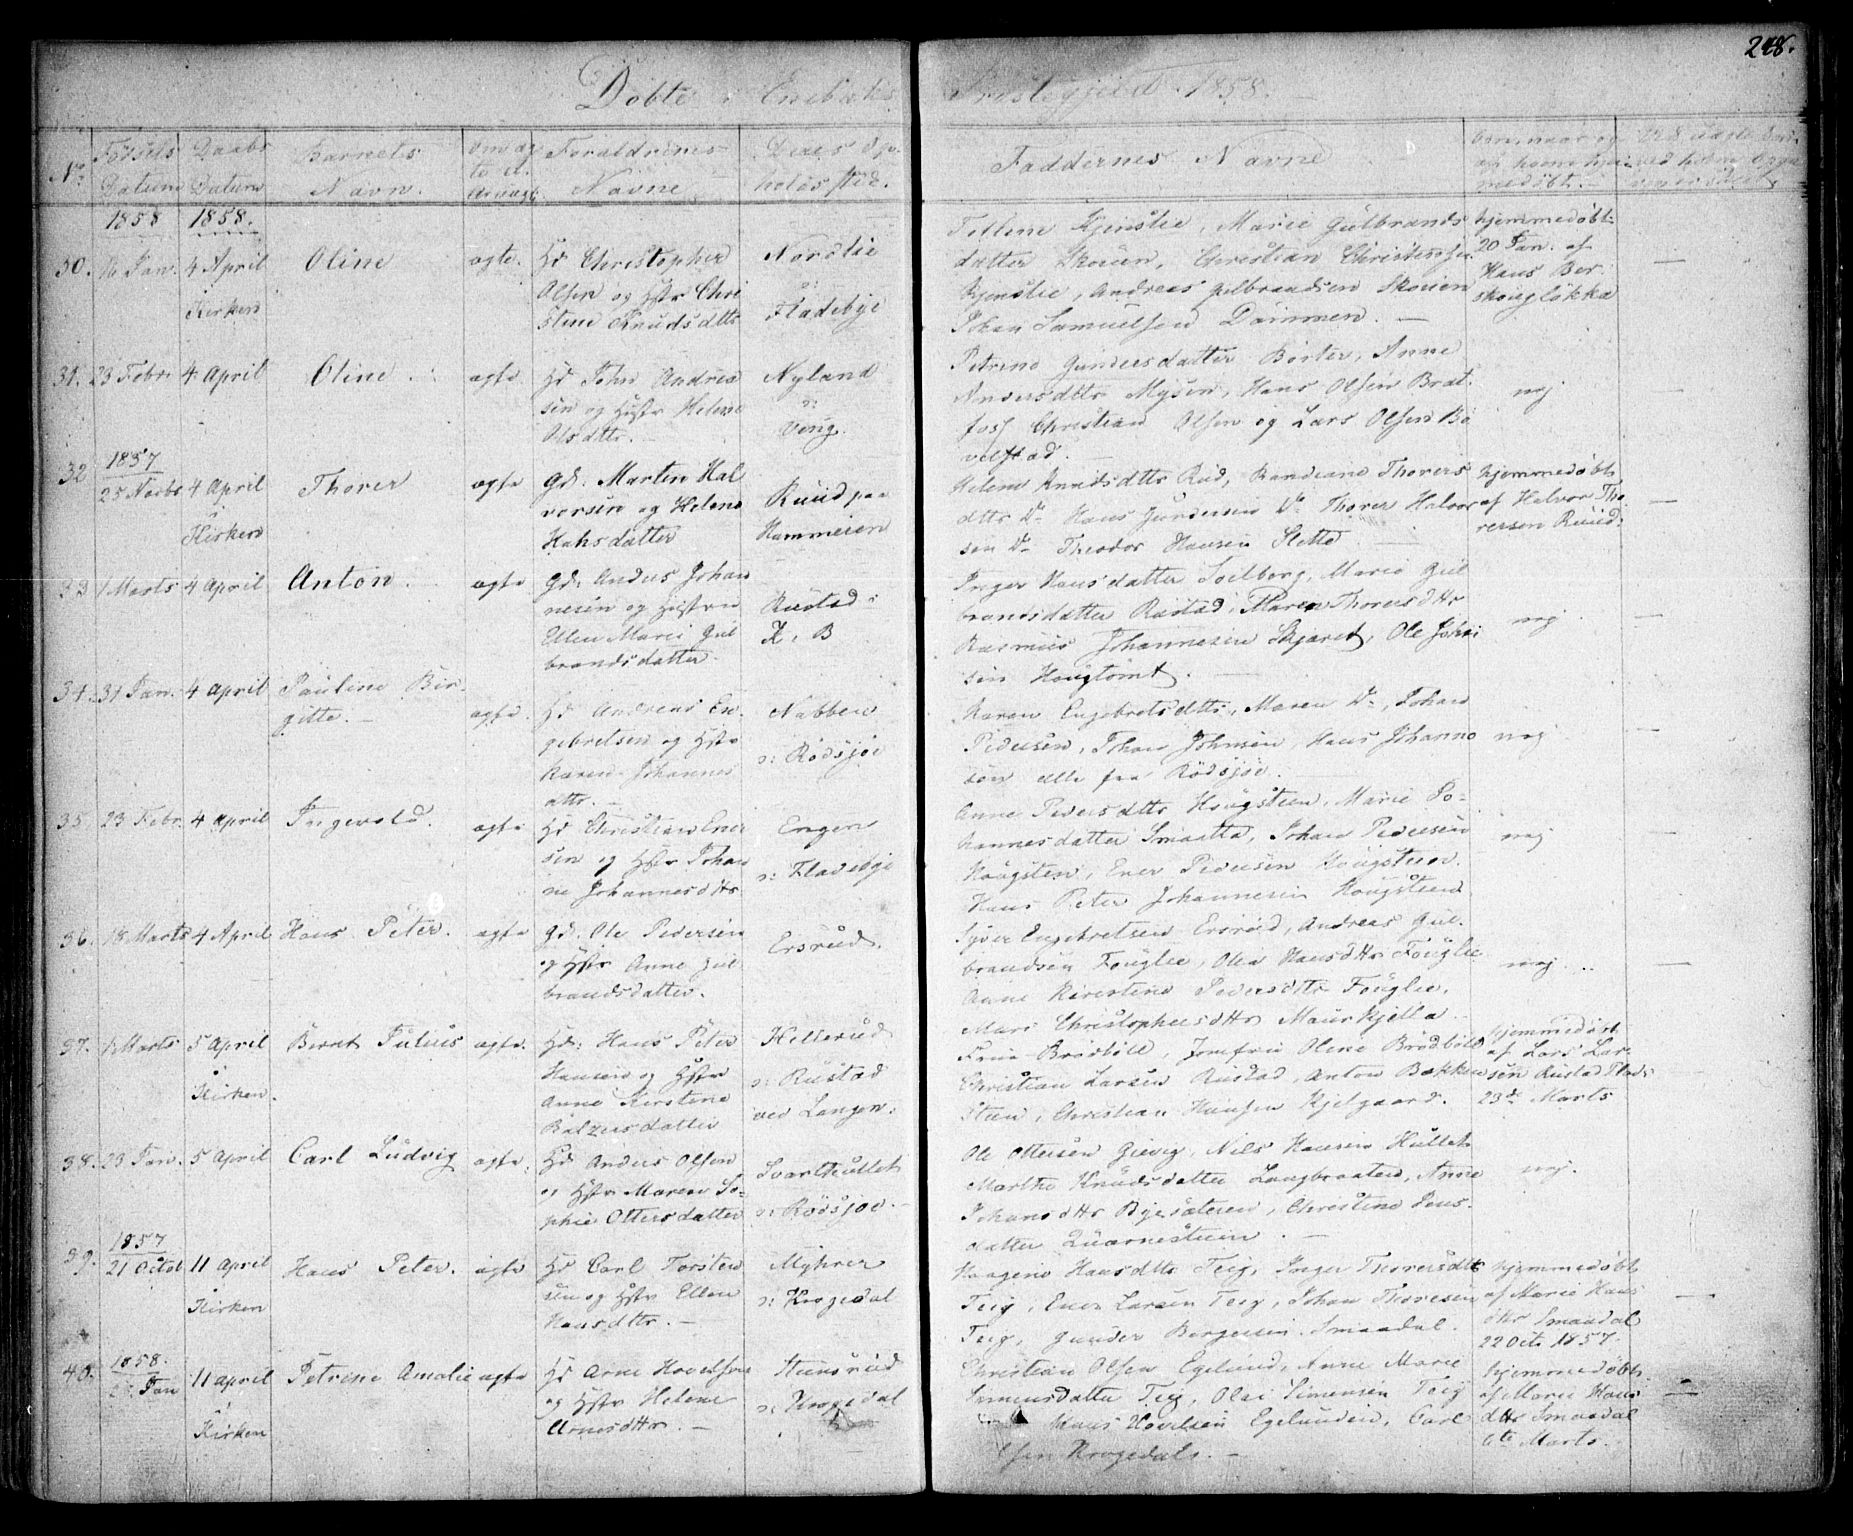 248.
Døbte i Enebaks Præstegjeld 1858.
No Fødsels Datum Daabs Datum Barnets Navn. Om ægte el. uægte Forældrenes Navne Deres Opholdssted. Faddernes Navne
1858 1858.
30. 16 Jan. 4 April Kirken Oline ægte. Hd Christopher
Olsen og Hstr Chri
stine Knudsdttr
Nordlie
Fladebye
Kjenslie, Marie Gulbrands
datter Skouen, Christian Christensen
Kjenslie, Andreas Gulbrandsen Skouen
Johan Samuelsen Dammen. —
hjemmedøbt
20 Jan. af
Hans Ber:
skougløkka
—
31. 23 Febr. 4 April Oline ægte Hd John Andrea
sen og Hustr Helene
Olsdttr. —
Nyland
o:
Veng.
Petrine Gundersdatter Børter, Anne
Andersdttr Mysen, Hans Olsen Brat
foss Christian Olsen og Lars Olsen Bø
velstad. —
nej
—
32 1857
25 Novbr 4 April
i
Kirken
Thorer ægte Gd: Marten Hal
vorsen og Helene
Hansdatter
Ruud paa
Hammeren
Helene Knudsdttr Rud, Randiane Thorers
dttr Do Hans Gundersen Do Thorer Halvor
sen Do Theodor Hansen Slette
hjemmedøbt
af Halvor Tho
rersen Ruud:
—
33 1 Marts 4 April Anton. ægte Gd: Anders Johan
nesen og Hustru
Ellen Marie Gul
brandsdatter.
Rustad:
K. B
Inger Hansdatter Solberg, Marie Gul
brandsdatter Rustad, Maren Thorersdttr
Rasmus Johannesen Skjæret, Ole Johan
sen Hougtomt. —
nej
—
34. 31 Jan. 4 April Pauline Bir
gitte. —
ægte. Hd Andreas En
gebretsen og Hstr
Karen Johannes
dttr. —
Nabben
o: Rødsjøe
Karen Engebretsdttr, Maren Do, Johan
Pedersen, Johan Johnsen, Hans Johanne
sen alle fra Rødsjøe.
nej
—
35. 23 Febr. 4 April Ingevald. ægte Hd Christian Ener
sen og Hstr Johan
ne Johannesdttr
Engen
o: Fladebye
Anne Pedersdttr Hougsteen, Marie Jo-
hannesdatter Smaatta, Johan Pedersen
Hougsten, Ener Pedersen Hougsteen.
Hans Peter Johannesen Hougsteen
nej
—
36. 18 Marts 4 April Hans Peter. ægte Gd. Ole Pedersen
og Hstr Anne Gul
brandsdatter.
Ersrud.
Syver Engebretsen Ersrud, Andreas Gul
brandsen Fouglie, Olea Hansdttr Fouglie
Anne Kirestine Pedersdttr Fouglie.
Mari Christophersdttr Maurkjella
nej. ..
—
37. 1 Marts 5 April
i
Kirken.
Bernt Julius ægte. Hd: Hans Peter
Hansen og Hstr
Anne Kirstine
Balzersdatter
Hellerud
o: Rustad
ved Langen:
Frue Brodtøll, Jomfru Olene Brodbøll
Christian Larsen Rustad, Anton Bakken
Steen, Christian Hansen Kjelgaard.
hjemmedøbt
af Lars Lar
sen Rustad
23de Marts
38. 23 Jan. 5 April Carl Ludvig ægte. Hd Anders Olsen
og Hstr Maren So-
phie Ottersdatter
Svarthullet
o: Rødsjøe. —
Ole Ottersen Gjevig, Nils Hansen Hullet
Marthe Knudsdatter Langbraaten, Anne
Johansdttr Byesæteren, Christine Jens
datter Quærnesteen. —
nej.
39. 1857
21 Octob 11 April
i
Kirken
Hans Peter. ægte Hd Carl Torsten
sen og Hstr Ellen
Hansdttr. —
Myhrer
o: Krogedal
Haagene Hansdttr Teig, Inger Thorersdttr
Teig, Ener Larsen Teig, Johan Thoresen
Teig, Gunder Borgersen Smaadal.
hjemmedøbt
af Marie Hans
dttr Smaadal
22 Oct. 1857
—
40. 1858.
Jan 11 April
i
Kirken
Petrine Amalie ægte Hd Arne Hovelsen
og Hstr Helene
Arnesdttr. —
Stensrud
o: Krogedal
Christian Olsen Egelund, Anne Marie
Simensdatter Teig, Olai Simensen Teig
Hans Hovelsen Egelunden, Carl
Olsen Krogedal. —
hjemmedøbt
af Marie Hans
dttr Smaadal
6te Marts.
—